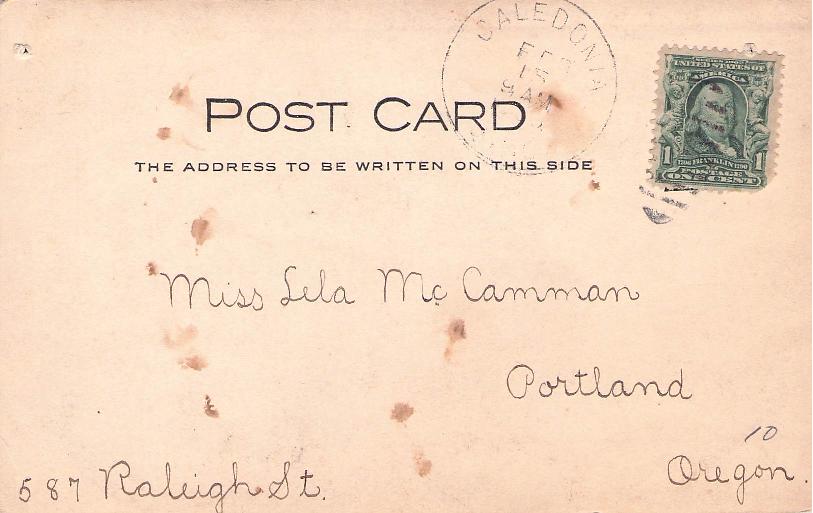 CALEDONIA
FEB
15
9 AM
SERIES 1902
UNITED STATES OF
AMERICA
POST CARD
1 1706 FRANKLIN 1790 1
POSTAGE
ONE CENT
THE ADDRESS TO BE WRITTEN ON THIS SIDE
Miss Lela McCamman
Portland
10
Oregon.
587 Raleigh St.